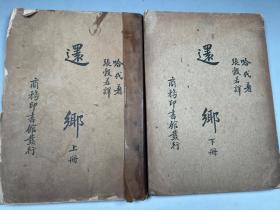 哈代著
張穀若譯
還鄉
上冊
商務印書館發行
哈代著
張穀若譯
還鄉
下冊
商務印書館發行